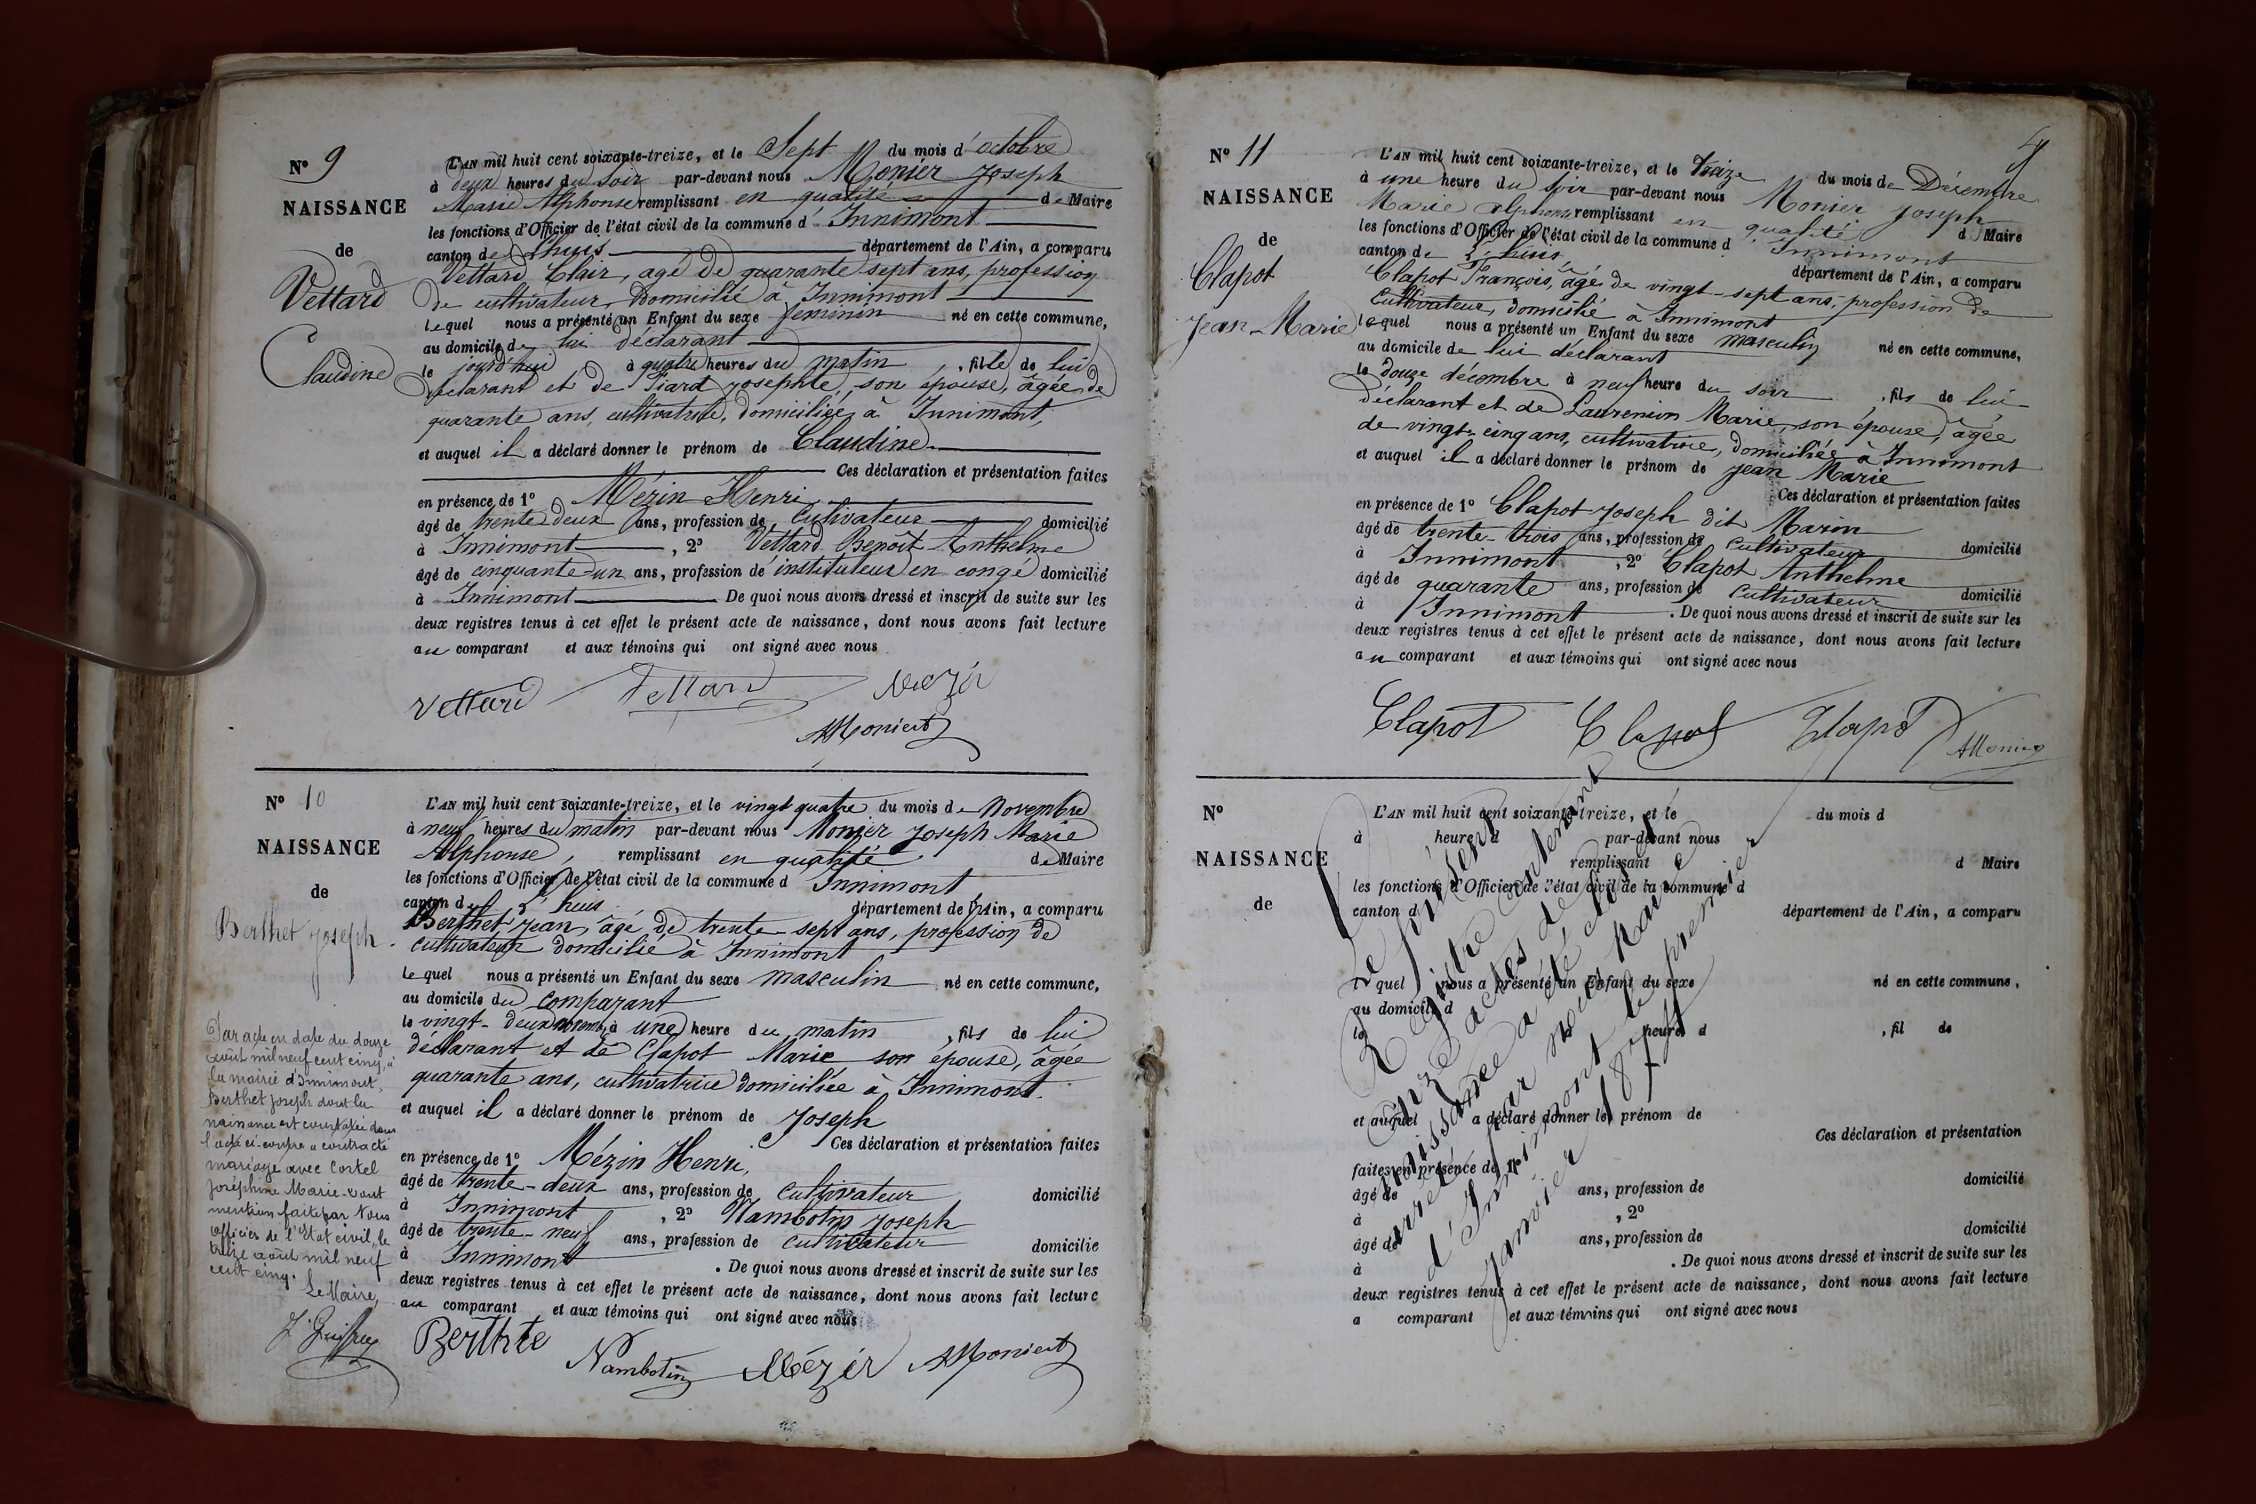 N° 9
NAISSANCE
de
Vettard
Claudine
L'AN mil huit cent soixante-treize, et le Sept du mois d'octobre
à deux heures du soir par-devant nous Monier Joseph
Marie Alphonse remplissant en qualité de Maire
les fonctions d'Officier de l'état civil de la commune d'Innimont
canton de Lhuis département de l'Ain, a comparu
Vettard Clair, agé de quarante sept ans, profession
de cultivateur, domicilié à Innimont
lequel nous a présenté un Enfant du sexe féminin né en cette commune,
au domicile de lui déclarant
le jourd'hui à quatre heures du matin, fille de lui
déclarant et de Fiard Josephte, son épouse, âgée de
quarante ans, cultivatrice, domiciliée à Innimont,
et auquel il a déclaré donner le prénom de Claudine
Ces déclaration et présentation faites
en présence de 1° Mézin Henri
âgé de trente deux ans, profession de cultivateur domicilié
à Innimont, 2° Vettard Benoît Anthelme
âgé de cinquante-un ans, profession de instituteur en congé domicilié
à Innimont De quoi nous avons dressé et inscrit de suite sur les
deux registres tenus à cet effet le présent acte de naissance, dont nous avons fait lecture
au comparant et aux témoins qui ont signé avec nous
Vettard Vettard Mézin
AMonier
N° 10
NAISSANCE
de
Berthet Joseph
L'AN mil huit cent soixante-treize, et le vingt quatre du mois de Novembre
à neuf heures du matin par-devant nous Monier Joseph Marie
Alphonse, remplissant en qualité de Maire
les fonctions d'Officier de l'état civil de la commune d Innimont
canton de Lhuis département de l'Ain, a comparu
Berthet Jean, âgé de trente-sept ans, profession de
cultivateur domicilié à Innimont
lequel nous a présenté un Enfant du sexe masculin né en cette commune,
au domicile du comparant
le vingt-deux novembre à une heure du matin, fils de lui
déclarant et de Clapot Marie son épouse, âgée
quarante ans, cultivatrice domiciliée à Innimont.
et auquel il a déclaré donner le prénom de Joseph
Ces déclaration et présentation faites
en présence de 1° Mézin Henri,
âgé de trente-deux ans, profession de cultivateur domicilié
à Innimont, 2° Nambotin Joseph
âgé de trente-neuf ans, profession de cultivateur domicilié
à Innimont. De quoi nous avons dressé et inscrit de suite sur les
deux registres tenus à cet effet le présent acte de naissance, dont nous avons fait lecture
au comparant et aux témoins qui ont signé avec nous
Berthte Nambotin Mézin AMonier
Par acte en date du douze
août mil neuf cent cinq, à
la mairie d'Innimont,
Berthet Joseph dont la
naissance est constatée dans
l'acte ci-contre a contracté
mariage avec Cortel
Joséphine Marie. Dont
mention faite par Nous
officier de l'Etat civil, le
treize août mil neuf
cent cinq.
Le Maire,
N° 11
NAISSANCE
de
Clapot
Jean-Marie
L'AN mil huit cent soixante-treize, et le treize du mois de Décembre
à une heure du soir par-devant nous Monier Joseph
Marie Alphonse remplissant en qualité d Maire
les fonctions d'Officier de l'état civil de la commune d Innimont
canton de Lhuis département de l'Ain, a comparu
Clapot François, âgé de vingt-sept ans, profession de
Cultivateur, domicilié à Innimont
lequel nous a présenté un Enfant du sexe masculin né en cette commune,
au domicile de lui déclarant
le douze décembre à neuf heure du soir, fils de lui
déclarant et de Laurencin Marie, son épouse, âgée
de vingt-cinq ans, cultivatrice, domiciliée à Innimont
et auquel il a déclaré donner le prénom de Jean Marie
Ces déclaration et présentation faites
en présence de 1° Clapot Joseph dit Marin
âgé de trente-trois ans, profession de cultivateur domicilié
à Innimont, 2° Clapot Anthelme
âgé de quarante ans, profession de cultivateur domicilié
à Innimont. De quoi nous avons dressé et inscrit de suite sur les
deux registres tenus à cet effet le présent acte de naissance, dont nous avons fait lecture
au comparant et aux témoins qui ont signé avec nous
Clapot Clapot Clapot AMonier
N°
NAISSANCE
de
L'AN mil huit cent soixante-treize, et le du mois d
à heure d par-devant nous
remplissant d Maire
les fonctions d'Officier de l'état civil de la commune d
canton d département de l'Ain, a comparu
lequel nous a présenté un Enfant du sexe né en cette commune,
au domicile d
le à heure d, fil de
et auquel a déclaré donner le prénom de
Ces déclaration et présentation
faites en présence de 1°
âgé de ans, profession de domicilié
à, 2°
âgé de ans, profession de domicilié
à. De quoi nous avons dressé et inscrit de suite sur les
deux registres tenus à cet effet le présent acte de naissance, dont nous avons fait lecture
a comparant et aux témoins qui ont signé avec nous
Le présent
Registre contenant
onze actes de
naissance a été clos et
arrêté par nous Maire
d'Innimont le premier
janvier 1874